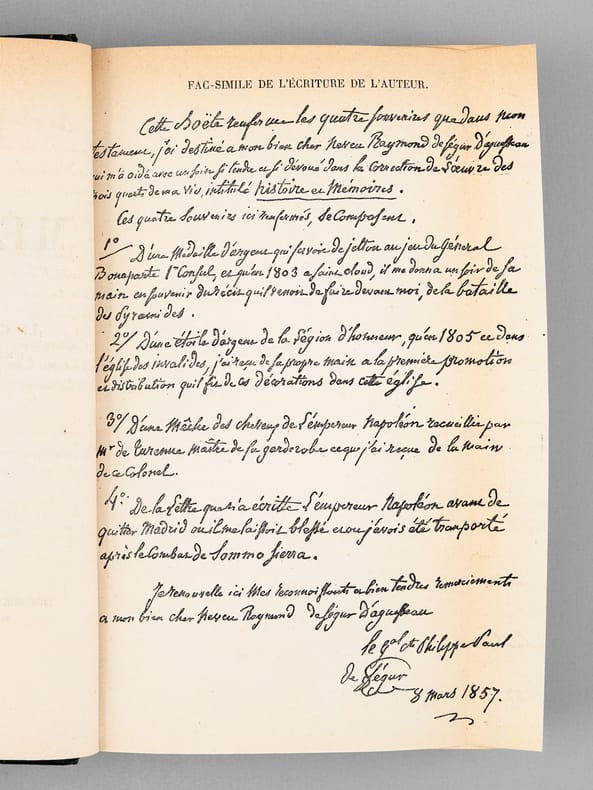 FAC-SIMILE DE L'ÉCRITURE DE L'AUTEUR.
Cette Boëte renferme les quatre souvenirs que dans mon
testament, j'ai destiné a mon bien cher Neveu Raymond de Ségur D'aguesseau
qui m'a aidé avec un soin si tendre et si dévoué dans la Correction de L'œuvre des
trois quarts de ma vie, intitulé histoire et Mémoires.
Ces quatre Souvenirs ici renfermés, se Composent.
1º D'une Medaille d'argent qui servoit de jetton au jeu du Général
Bonaparte 1er Consul, et qu'en 1803 a saint cloud, il me donna un soir de sa
main en souvenir du récit qu'il venoit de faire devant moi, de la bataille
des Pyramides.
2º/ D'une étoile d'argent de la Légion d'honneur, qu'en 1805 et dans
l'église des invalides, j'ai reçue de sa propre main a la première promotion
et distribution qu'il fit de ces décorations dans cette église.
3º/ D'une Mêche des cheveux de L'empereur Napoléon recueillie par
Mr de Turenne maître de sa garderobe et que j'ai reçue de la main
de ce Colonel.
4º. De la Lettre que m'a écritte L'empereur Napoléon avant de
quitter Madrid ou il me laissoit blessé et ou j'avois été transporté
après le Combat de Sommo Sierra.
Je renouvelle ici mes reconnoissants et bien tendres remerciements
a mon bien cher Neveu Raymond de Ségur D'aguesseau
le gal cte Philippe Paul
de Ségur
8 mars 1857.